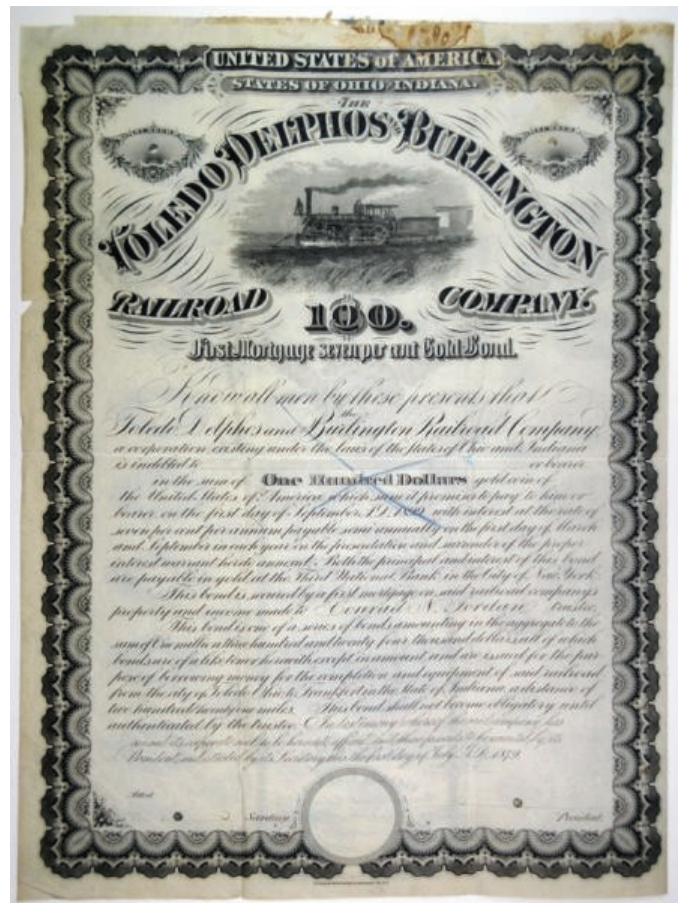 UNITED STATES OF AMERICA.
STATES OF OHIO INDIANA.
THE
TOLEDO DELPHOS AND BURLINGTON
RAILROAD COMPANY.
100.
First Mortgage seven per cent Gold Bond.
Know all men by these presents that
the
Toledo Delphos and Burlington Railroad Company
a corporation existing under the laws of the States of Ohio and Indiana
is indebted to or bearer
in the sum of One Hundred Dollars gold coin of
the United States of America which sum it promises to pay to him or
bearer on the first day of September A.D. with interest at the rate of
seven per cent per annum payable semi annually on the first day of March
and September in each year on the presentation and surrender of the proper
interest warrant hereto annexed. Both the principal and interest of this bond
are payable in gold at the Third National Bank in the City of New York
This bond is secured by a first mortgage on said railroad company's
property and income made to Conrad N. Jordan trustee.
This bond is one of a series of bonds amounting in the aggregate to the
sum of One million three hundred and twenty four thousand dollars all of which
bonds are of a like tenor herewith except in amount and are issued for the pur
pose of borrowing money for the completion and equipment of said railroad
from the city of Toledo Ohio to Frankfort in the State of Indiana, a distance of
two hundred twenty one miles. This bond shall not become obligatory until
authenticated by the trustee. In testimony whereof the said company has
caused its corporate seal to be hereunto affixed and these presents to be executed by its
President, and attested by its Secretary this the first day of July A.D. 1879.
Attest
Secretary President.